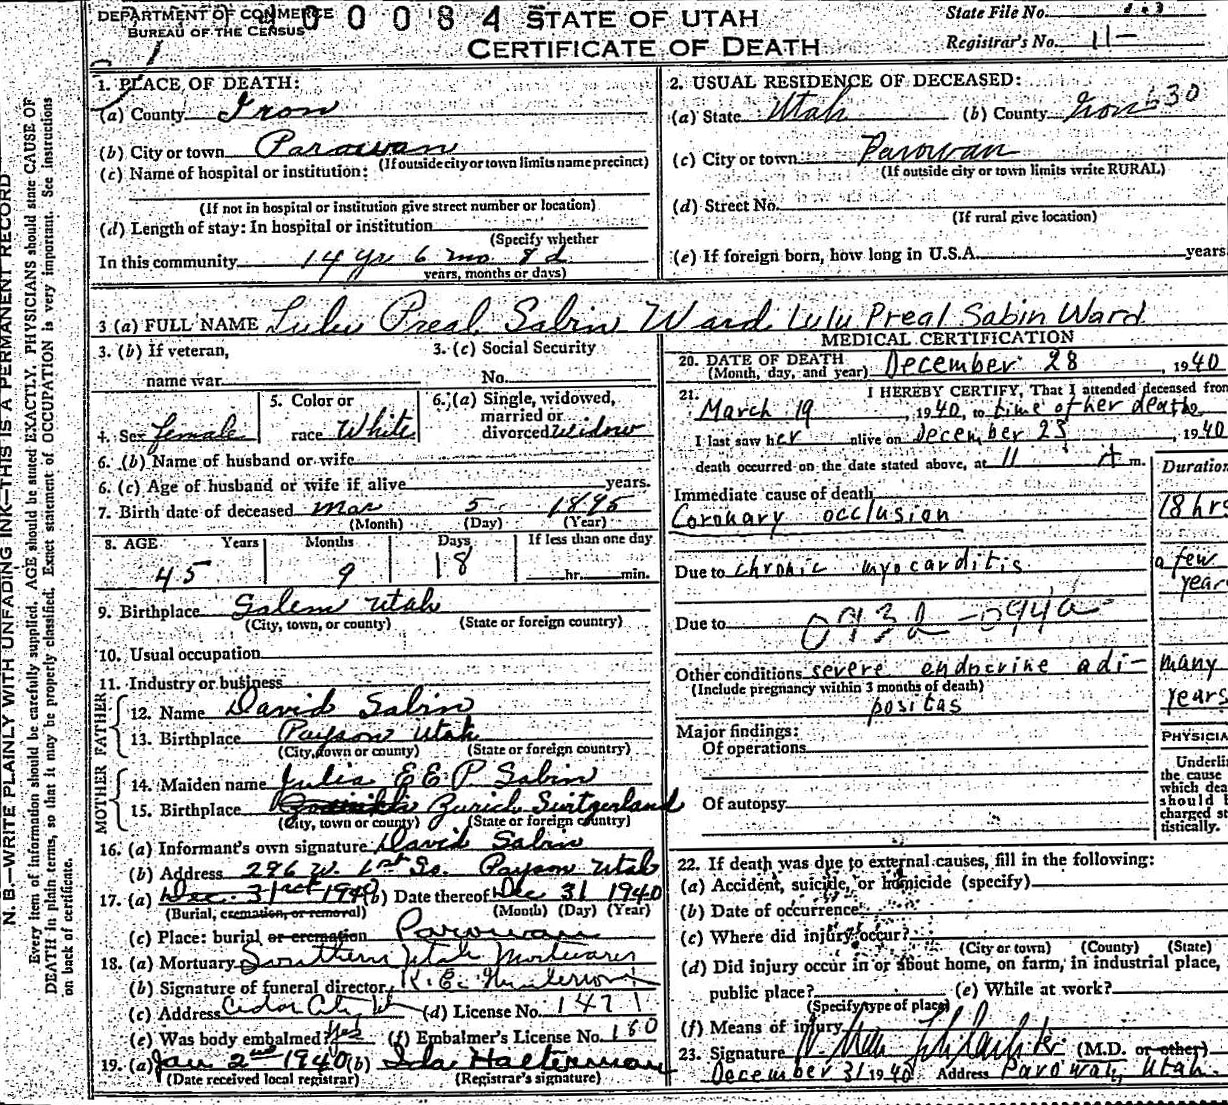 DEPARTMENT OF COMMERCE
BUREAU OF THE CENSUS
0 0 0 8 4 STATE OF UTAH
CERTIFICATE OF DEATH
State File No.
Registrar's No. 11-
N. B.—WRITE PLAINLY WITH UNFADING INK—THIS IS A PERMANENT RECORD
Every item of information should be carefully supplied. AGE should be stated EXACTLY. PHYSICIANS should state CAUSE OF
DEATH in plain terms, so that it may be properly classified. Exact statement of OCCUPATION is very important. See instructions
on back of certificate.
1. PLACE OF DEATH:
(a) County Iron
(b) City or town Parowan
(If outside city or town limits name precinct)
(c) Name of hospital or institution:
(If not in hospital or institution give street number or location)
(d) Length of stay: In hospital or institution
(Specify whether
In this community 14 yr 6 mo 8 d
years, months or days)
2. USUAL RESIDENCE OF DECEASED:
(a) State Utah (b) County Iron 630
(c) City or town Parowan
(If outside city or town limits write RURAL)
(d) Street No.
(If rural give location)
(e) If foreign born, how long in U.S.A. years
3 (a) FULL NAME Lulu Preal Sabin Ward Lulu Preal Sabin Ward
3. (b) If veteran,
name war
3. (c) Social Security
No.
4. Sex female
5. Color or
race White
6. (a) Single, widowed,
married or
divorced widow
6. (b) Name of husband or wife
6. (c) Age of husband or wife if alive years.
7. Birth date of deceased Mar 5 1895
(Month) (Day) (Year)
8. AGE Years Months Days If less than one day
45 9 18 hr. min.
9. Birthplace Salem Utah
(City, town, or county) (State or foreign country)
10. Usual occupation
11. Industry or business
FATHER
12. Name David Sabin
13. Birthplace Payson Utah
(City, town or county) (State or foreign country)
MOTHER
14. Maiden name Julia E E P Sabin
15. Birthplace Zurich Switzerland
(City, town or county) (State or foreign country)
16. (a) Informant's own signature David Sabin
(b) Address 296 W. 1st So. Payson Utah
17. (a) Dec. 31st 1940 (b) Date thereof Dec 31 1940
(Burial, cremation, or removal) (Month) (Day) (Year)
(c) Place: burial or cremation Parowan
18. (a) Mortuary Southern Utah Mortuary
(b) Signature of funeral director K.E.
(c) Address Cedar City, Ut (d) License No. 1471
(e) Was body embalmed? Yes (f) Embalmer's License No. 180
19. (a) Jan 2nd 1940 (b) Ida Halterman
(Date received local registrar) (Registrar's signature)
MEDICAL CERTIFICATION
20. DATE OF DEATH December 28, 1940
(Month, day, and year)
21. I HEREBY CERTIFY, That I attended deceased from
March 19, 1940, to time of her death,
I last saw her alive on December 23, 1940
death occurred on the date stated above, at 11 A m.
Duration
Immediate cause of death
Coronary occlusion 18 hrs
Due to chronic myocarditis a few
year
Due to 093 -094a
Other conditions severe endocrine adi- many
(Include pregnancy within 3 months of death)
positas years
Major findings:
Of operations
PHYSICIA
Underli
the cause
which dea
should b
charged st
tistically.
Of autopsy
22. If death was due to external causes, fill in the following:
(a) Accident, suicide, or homicide (specify)
(b) Date of occurrence
(c) Where did injury occur?
(City or town) (County) (State)
(d) Did injury occur in or about home, on farm, in industrial place,
public place? (e) While at work?
(Specify type of place)
(f) Means of injury
23. Signature (M.D. or other)
December 31 1940 Address Parowan, Utah.